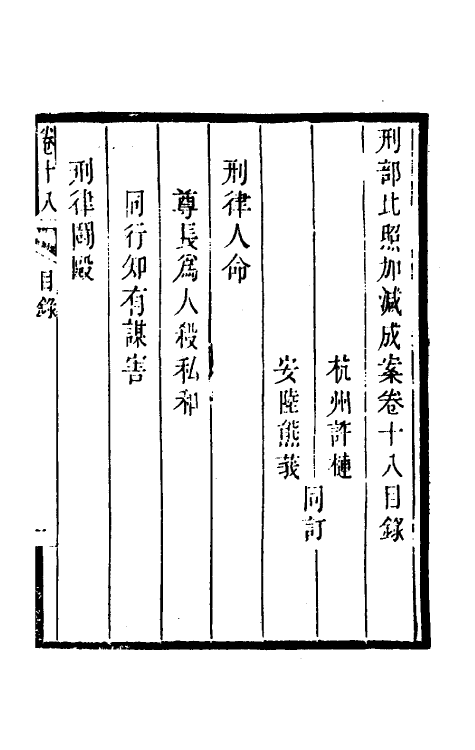 刑部比照加減成案卷十八目錄
杭州許槤
安陸熊莪
同訂
刑律人命
尊長爲人殺私和
同行知有謀害
刑律鬭毆
卷十八
目錄
一